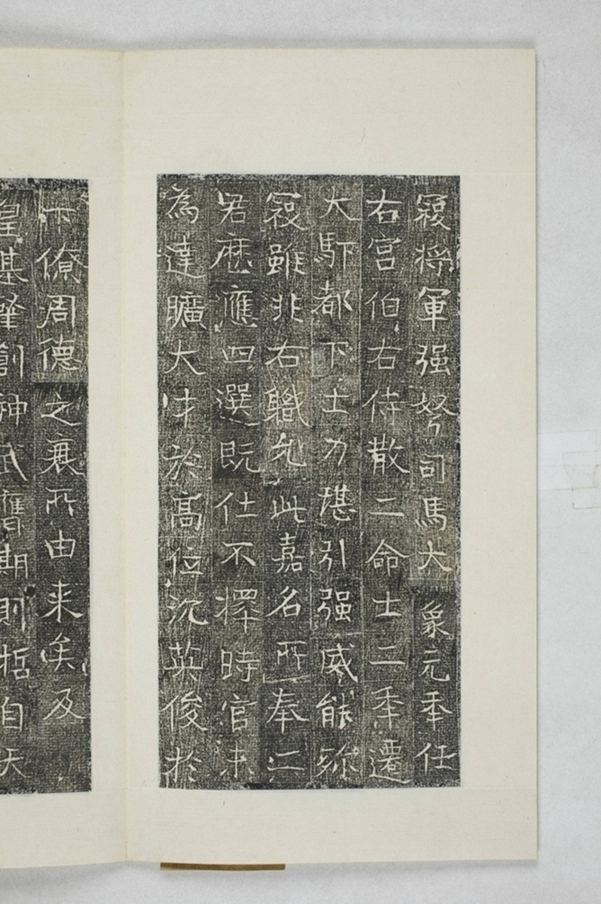 寇將軍强弩司馬大象元年仕
右宫伯右侍散二命士二年遷
大馭都下士力堪引强威能弥
寇雖非右職允此嘉名所奉二
君歷應四選既仕不擇時官未
為達曠大才於高位沉英俊於
下僚周德之衰所由来矣及
皇基肇創神武膺期則哲自天